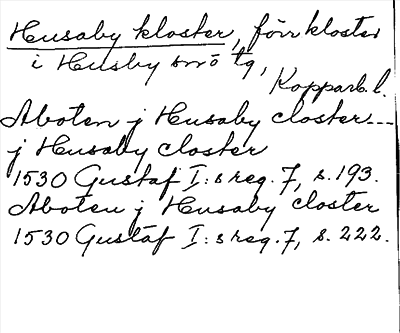 Husaby kloster, förr kloster
i Husby smö tg,
Kopparb. l.
Aboten j Husaby closter---
j Husaby closter
1530 Gustaf I:s reg. 7, s. 193.
Aboten j Husaby closter
1530 Gustaf I:s reg. 7, s. 222.